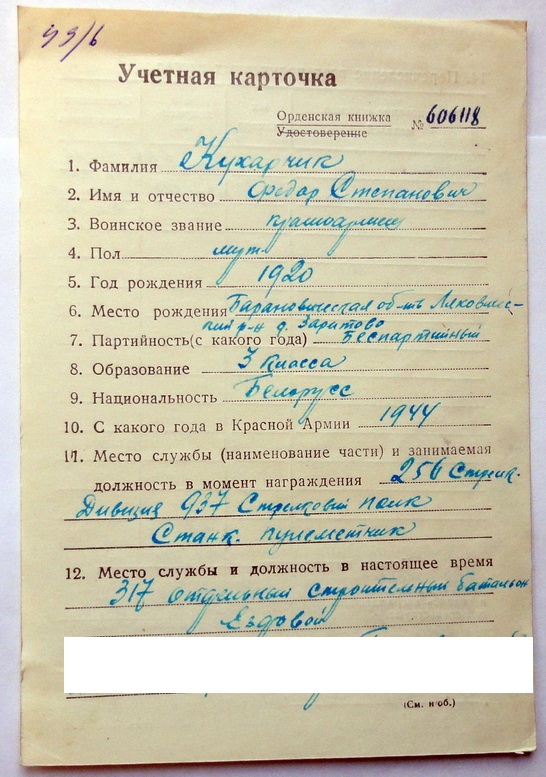 93/6
Учетная карточка
Орденская книжка
Удостоверение
№ 606118
1. Фамилия Кухарчик
2. Имя и отчество Федор Степанович
3. Воинское звание
4. Пол муж.
5. Год рождения 1920
6. Место рождения Барановическая об-ть Ляхович-
ский р-н д. Заритово
7. Партийность (с какого года) Беспартийный
8. Образование 3 класса
9. Национальность Белорусс
10. С какого года в Красной Армии 1944
11. Место службы (наименование части) и занимаемая
должность в момент награждения 256 Стрелк.
Дивизия 937 Стрелковый полк
Станк. пулеметчик
12. Место службы и должность в настоящее время
317 отдельный строительный батальон
Ездовой
(См. н/об.)